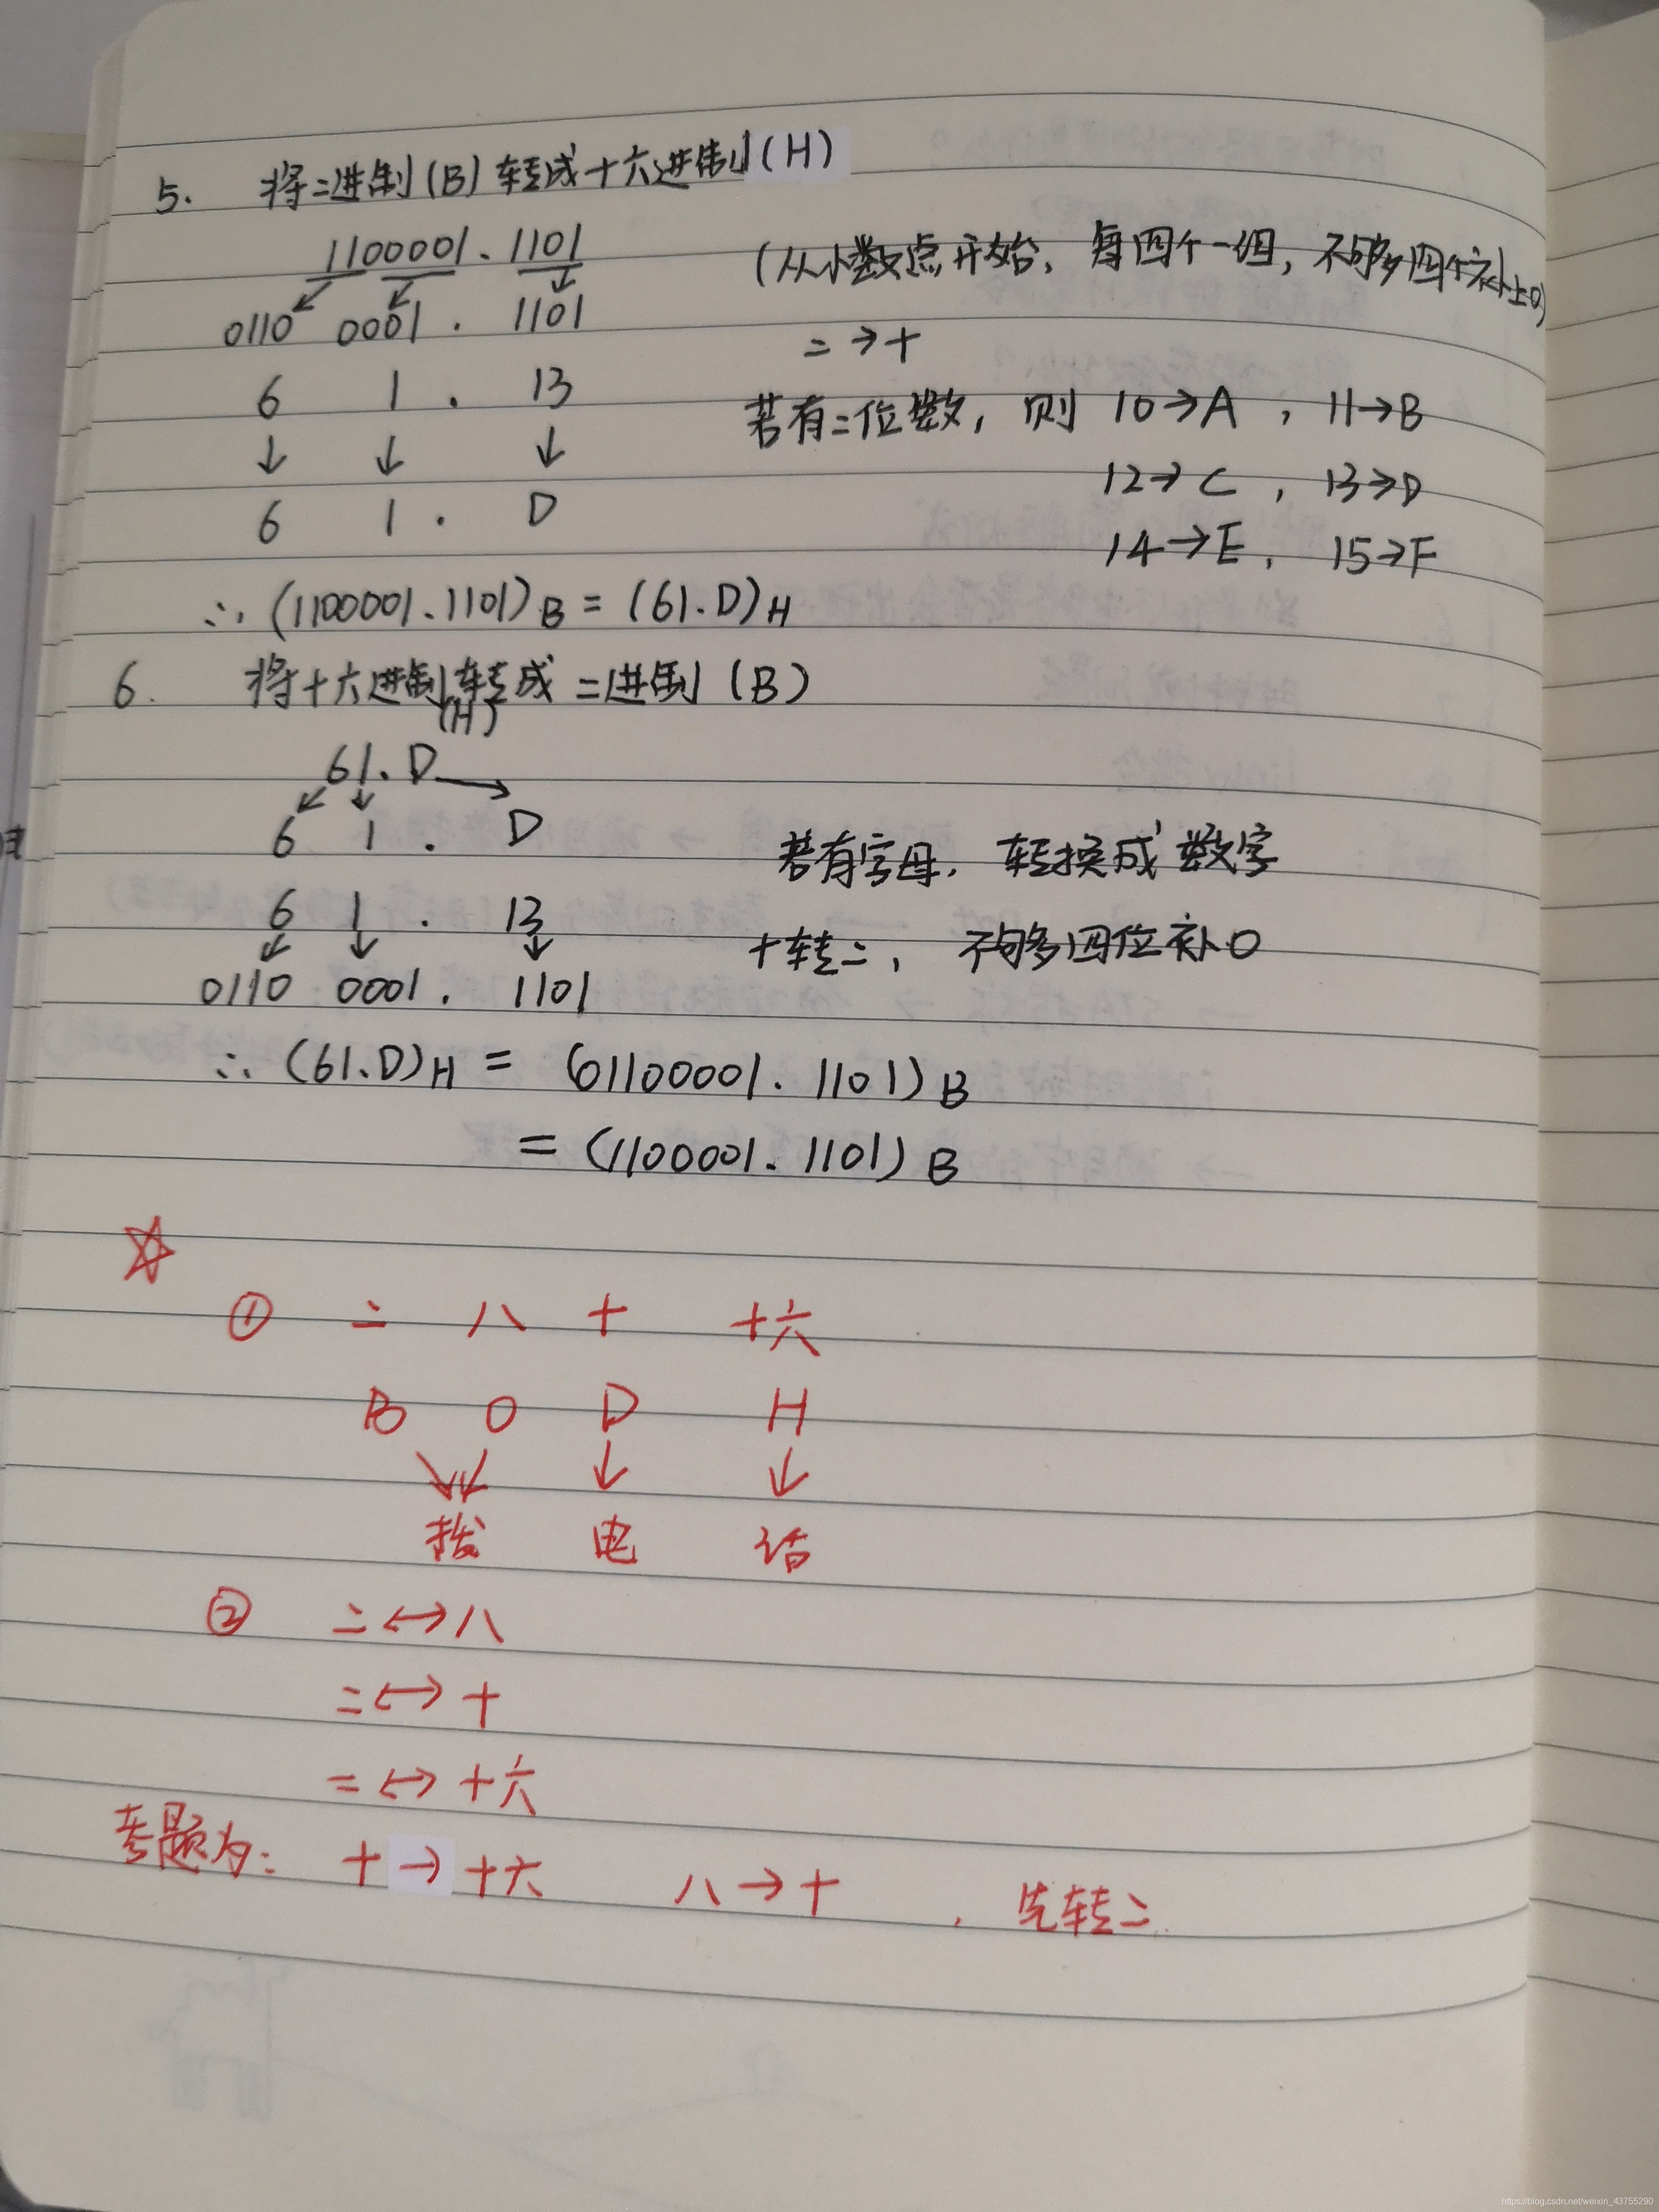 5. 将二进制(B)转成十六进制(H)
1100001.1101 (从小数点开始,每四个一组,不够四个补上0)
0110 0001 . 1101
二→十
6 1 . 13
若有二位数,则 10→A , 11→B
↓ ↓ ↓
12→C , 13→D
6 1 . D
14→E, 15→F
∴ (1100001.1101)B = (61.D)H
6. 将十六进制转成二进制(B)
(H)
61.D
6 1 . D
若有字母,转换成数字
6 1 . 13
十转二, 不够四位补0
0110 0001 . 1101
∴ (61.D)H = (01100001.1101)B
= (1100001.1101)B
☆
① 二 八 十 十六
B O D H
拨 电 话
② 二↔八
二↔十
二↔十六
考题为: 十→十六 八→十 , 先转二
https://blog.csdn.net/weixin_43755290